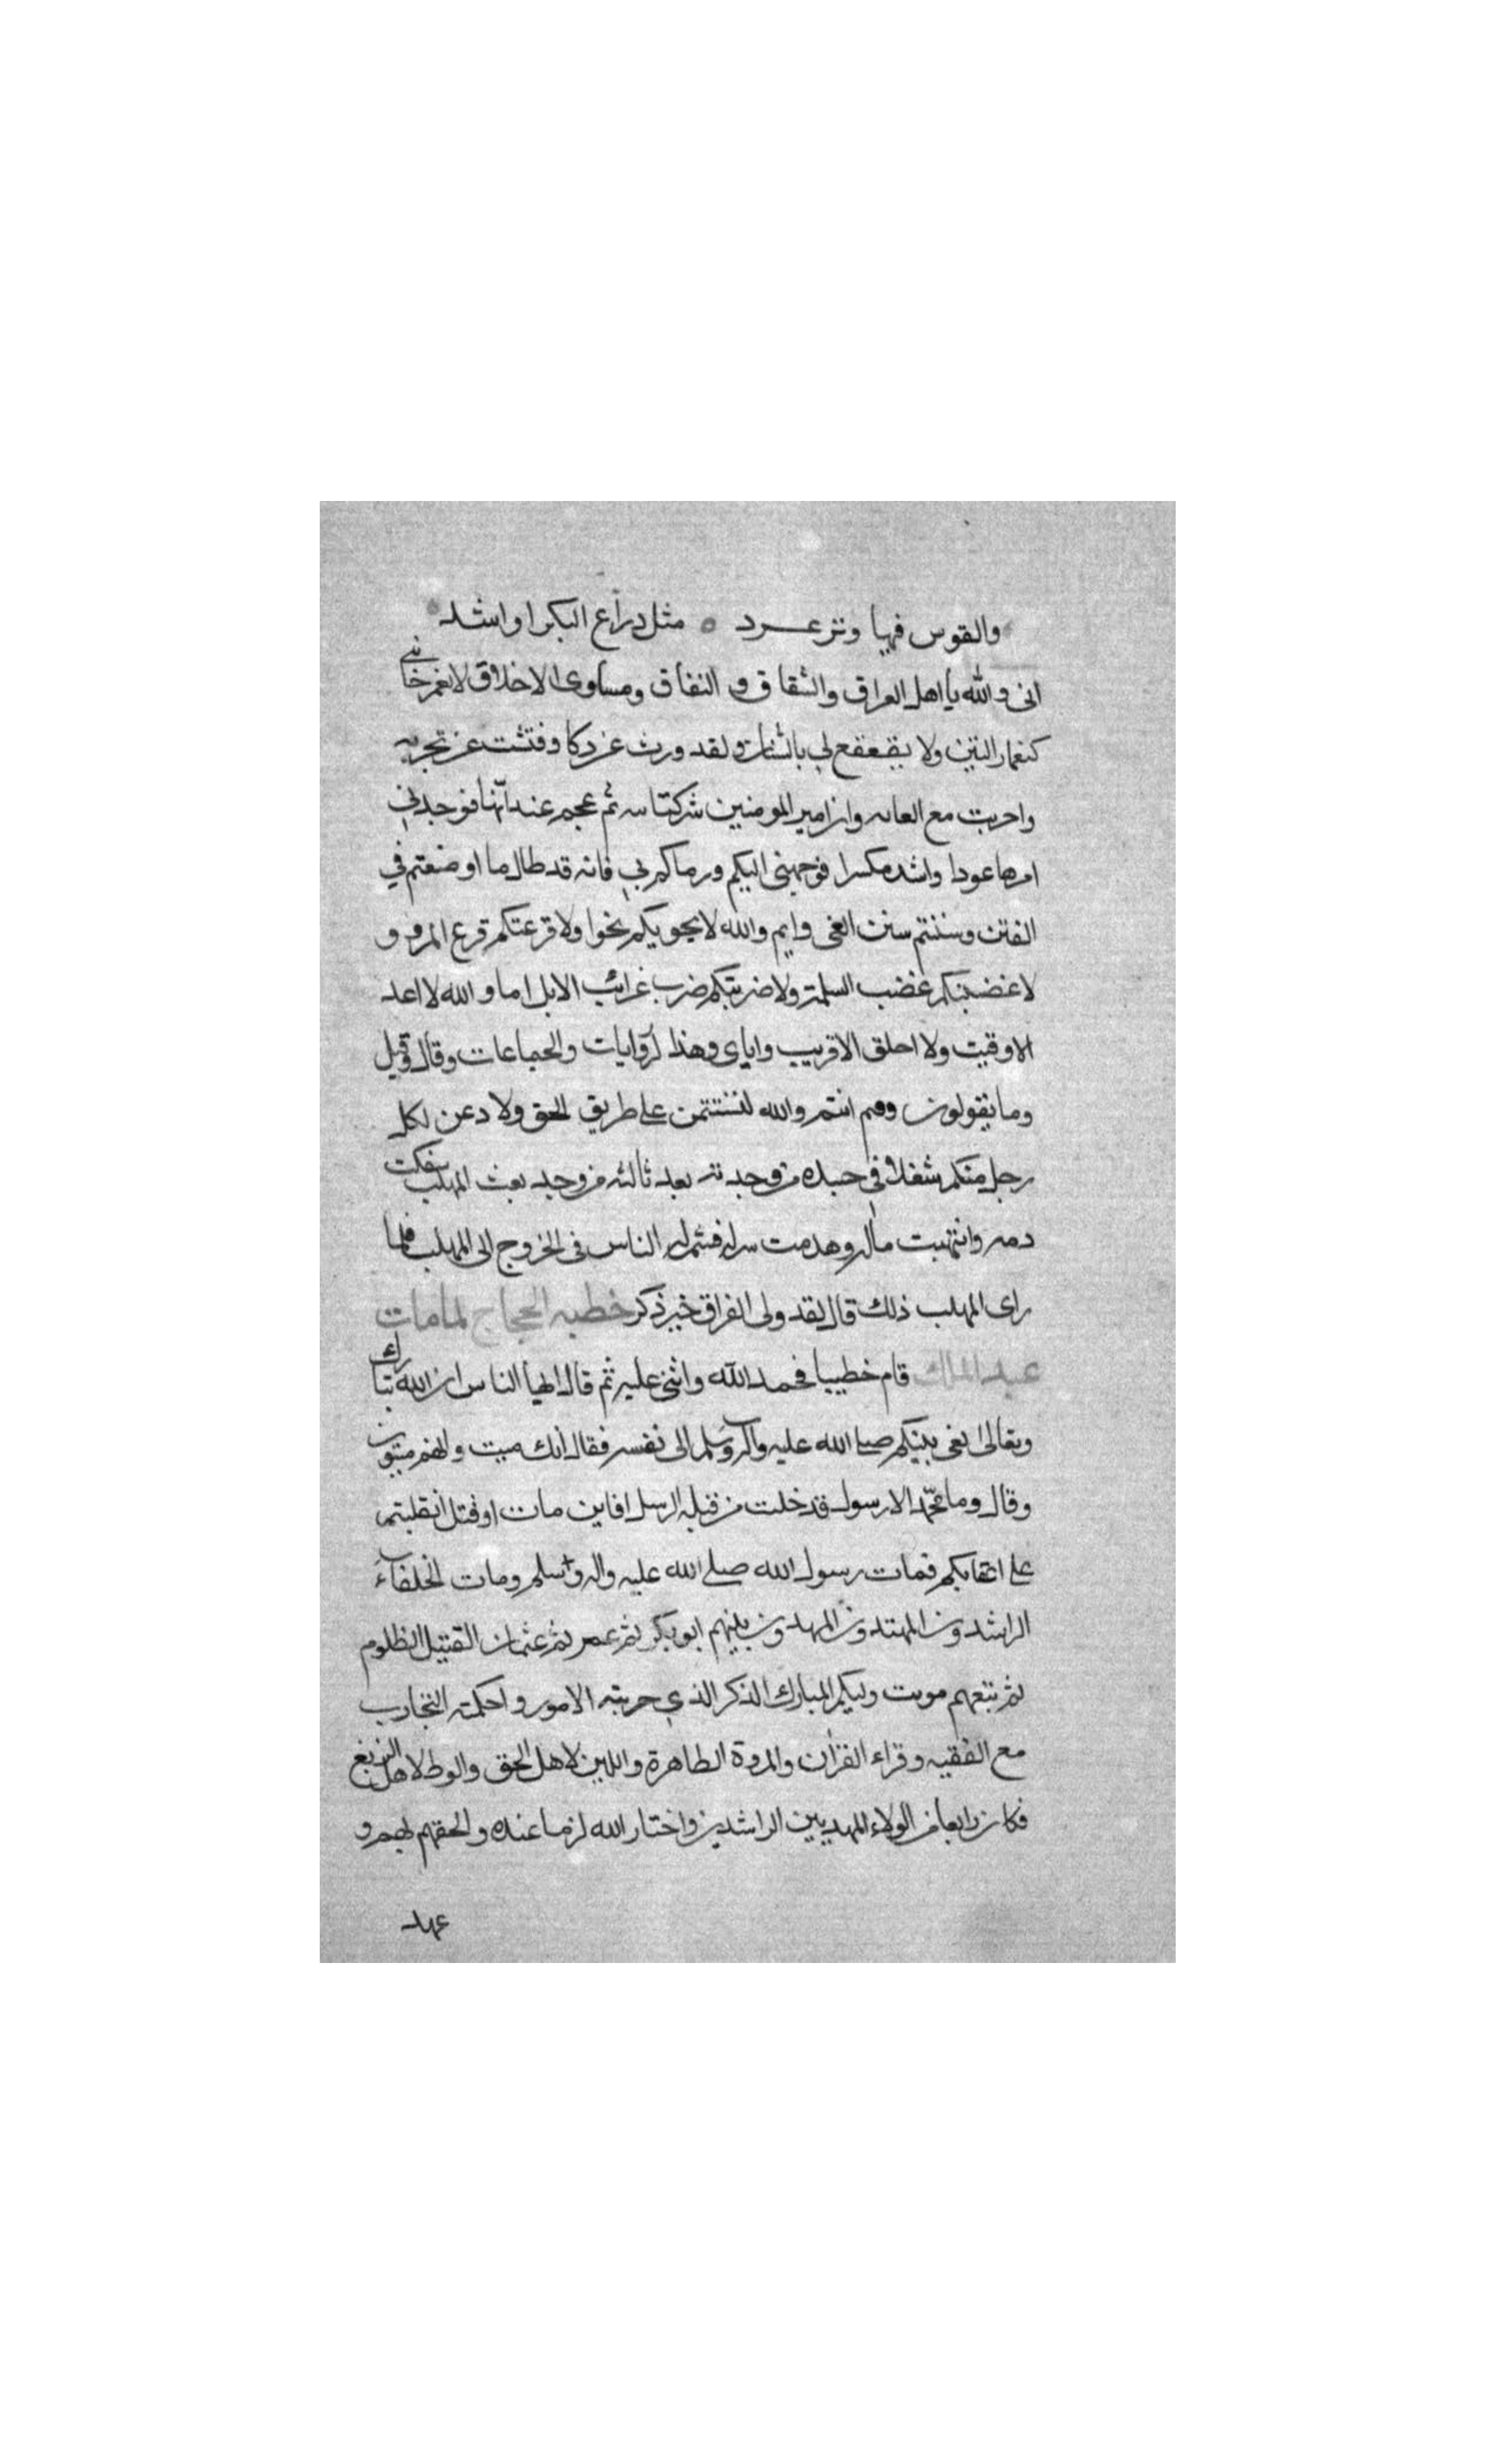 والقوس فيها وتر عرد ه مثل ذراع البكر او اشد
انى والله يا اهل العراق والشقاق و النفاق ومساوى الاخلاق لا يغمز جانبى
كتغماز التين ولا يقعقع لي بالشنان ولقد فررت عن ذكا وفتشت عن تجربه
واجريت مع الغايه وان امير المومنين كنانته ثم عجم عيدانها فوجدني
امرها عودا واشد مكسرا فوجهنى اليكم ورماكم بي فانه قد طال ما اوضعتم في
الفتن وسننتم سنن الغى وايم والله لا نحويكم نحوا ولا قرعتكم قرع المرو و
لاعضبنكم عضب السلمة ولاضربنكم ضرب غرائب الابل اما و الله لا اعد
الا وفيت ولا احلق الا فريت واياى وهذا الروايات والجماعات وقال وقيل
وما يقولون وفيم انتم والله لتستقمن على طريق الحق ولا دعن لكل
رجل منكم شغلا فى جسده من وجدته بعد ثالثه من وجد بعث المهلب سفكت
دمه وانتهبت ماله وهدمت منزله فشمر الناس فى الخروج الى المهلب فلما
راى المهلب ذلك قال لقد ولى العراق خير ذكر خطبه الحجاج لما مات
عبد الملك قام خطيبا فحمد الله واثنى عليه ثم قال ايها الناس ان الله تبارك
وتعالى نعى نبيكم صلى الله عليه واله وسلم الى نفسه فقال انك ميت وانهم ميتون
وقال وما محمد الا رسول قد خلت من قبله الرسل افاين مات او قتل انقلبتم
على اعقابكم فمات رسول الله صلى الله عليه واله وسلم ومات الخلفاء
الراشدون المهتدون المهديون بينهم ابو بكر ثم عمر ثم عثمان القتيل المظلوم
ثم تبعهم موت وليكم المبارك الذكر الذي جربته الامور و احكمته التجارب
مع الفقيه و قراء القران والمروة الطاهرة واللين لاهل الحق والوط لاهل الزيغ
فكان رابعا من الولاء المهديين الراشدين واختار الله له ما عنده والحقهم بهم و
عهد